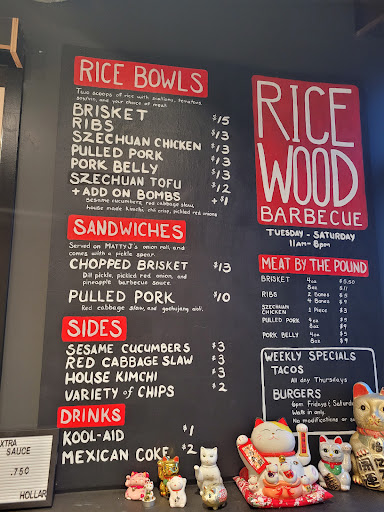 RICE BOWLS
Two scoops of rice with scallions, tomatoes,
and your choice of meat.
BRISKET $15
RIBS $13
SZECHUAN CHICKEN $13
PULLED PORK $13
PORK BELLY $13
SZECHUAN TOFU $12
+ADD ON BOMBS +$1
Sesame cucumbers, red cabbage slaw,
house made kimchi, chili crisp, pickled red onions
SANDWICHES
Served on MATTYJ's onion roll, and
comes with a pickle spear.
CHOPPED BRISKET $13
Dill pickle, pickled red onion, and
pineapple barbecue sauce.
PULLED PORK $10
Red cabbage slaw, and gochujang aioli.
SIDES
SESAME CUCUMBERS $3
RED CABBAGE SLAW $3
HOUSE KIMCHI $3
VARIETY of CHIPS $2
DRINKS
KOOL-AID $1
MEXICAN COKE $2
EXTRA
SAUCE
.75¢
HOLLAR
RICE
WOOD
BARBECUE
TUESDAY - SATURDAY
11am - 8pm
MEAT BY THE POUND
BRISKET 4oz $5.50
8oz $11
RIBS 2 Bones $5
4 Bones
SZECHUAN
CHICKEN 1 Piece $3
PULLED PORK 4oz $5
8oz $9
PORK BELLY 4oz $5
8oz $9
WEEKLY SPECIALS
TACOS
All day Thursdays
BURGERS
6pm Fridays & Saturda
Walk in only.
No modifications or